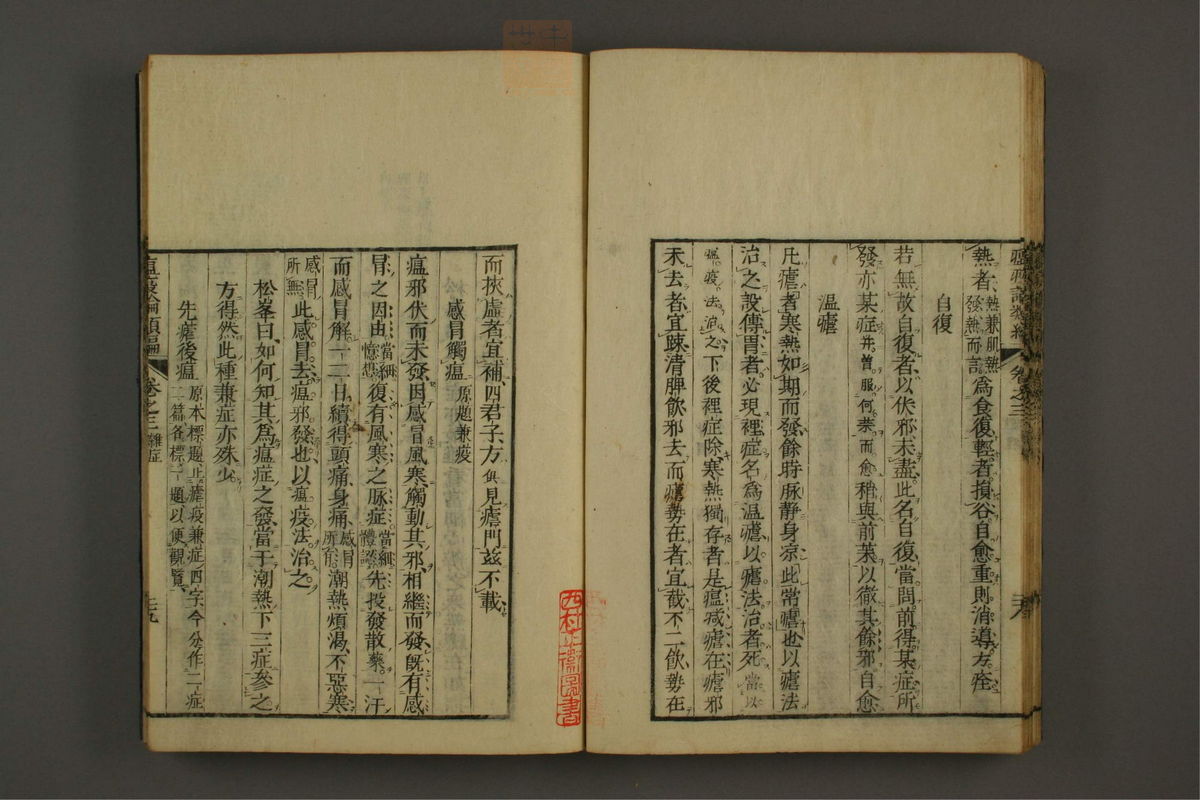 熱者熱兼肌熱發熱而言爲食復輕者損谷自愈重則消導方痊
自復
若無故自復者以伏邪未盡此名自復當問前得某症所
發亦某症并曾服何藥而愈稍與前藥以徹其餘邪自愈
温瘧
凡瘧者寒熱如期而發餘時脉靜身凉此常瘧也以瘧法
治之設傳胃者必現裡症名爲温瘧以瘧法治者死當以
瘟疫法治之下後裡症除寒熱獨存者是瘟减瘧在瘧邪
未去者宜疎清脾飲邪去而瘧勢在者宜截不二飲勢在
卷之三
而挾虛者宜補四君子方俱見瘧門兹不載
感冒觸瘟原題兼疫
瘟邪伏而未發因感冒風寒觸動其邪相繼而發旣有感
冒之因由當細憶想復有風寒之脉症當細體認先投發散藥一汗
而感冒解一二日續得頭痛身痛感冒所有潮熱煩渴不惡寒
感冒所無此感冒去瘟邪發也以瘟疫法治之
松峯曰如何知其爲瘟症之發當于潮熱下三症參之
方得然此種兼症亦殊少
先瘧後瘟原本標題止瘧疫兼症四字今分作二症二篇各標一題以便觀覽
瘟疫論類編
卷之三
雜症